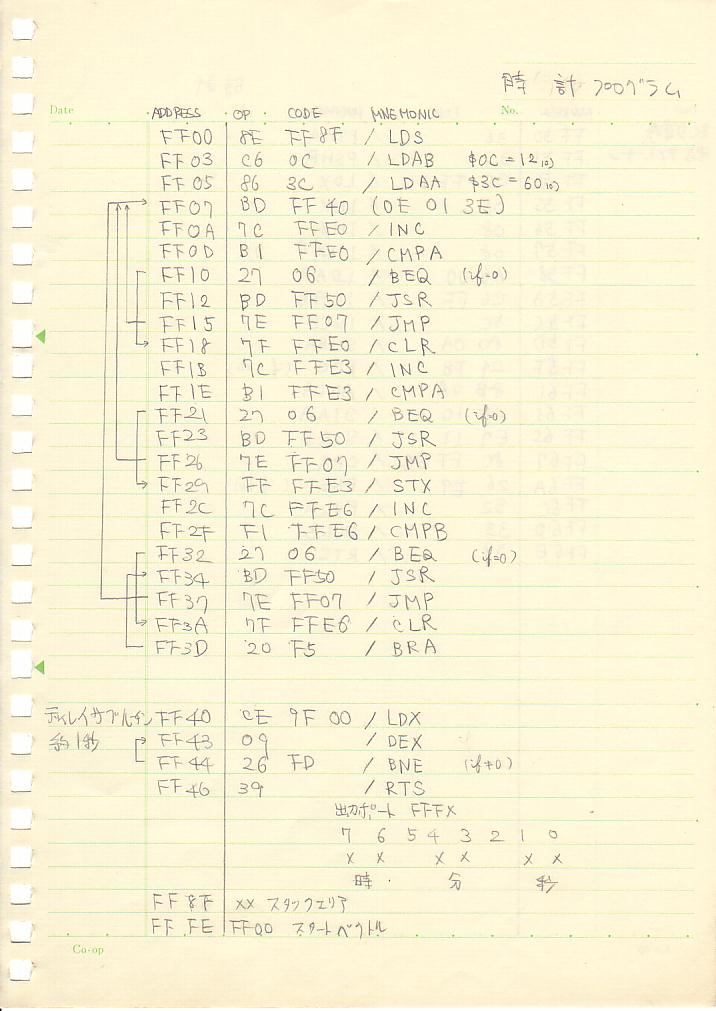 時 計 プログラム
Date ADDRESS OP CODE MNEMONIC No.
FF00 8E FF8F / LDS
FF03 C6 0C / LDAB $0C = 12₁₀)
FF05 86 3C / LDAA $3C = 60₁₀)
FF07 BD FF40 (0E 01 3E)
FF0A 7C FFE0 / INC
FF0D B1 FFE0 / CMPA
FF10 27 06 / BEQ (if=0)
FF12 BD FF50 / JSR
FF15 7E FF07 / JMP
FF18 7F FFE0 / CLR
FF1B 7C FFE3 / INC
FF1E B1 FFE3 / CMPA
FF21 27 06 / BEQ (if=0)
FF23 BD FF50 / JSR
FF26 7E FF07 / JMP
FF29 FF FFE3 / STX
FF2C 7C FFE6 / INC
FF2F F1 FFE6 / CMPB
FF32 27 06 / BEQ (if=0)
FF34 BD FF50 / JSR
FF37 7E FF07 / JMP
FF3A 7F FFE6 / CLR
FF3D 20 F5 / BRA
ディレイサブルーチン FF40 CE 9F 00 / LDX
約1秒 FF43 09 / DEX
FF44 26 FD / BNE (if≠0)
FF46 39 / RTS
出力ポート FFFX
7 6 5 4 3 2 1 0
x x x x x x
時 分 秒
FF8F xx スタックエリア
FFFE FF00 スタートベクトル
Co-op